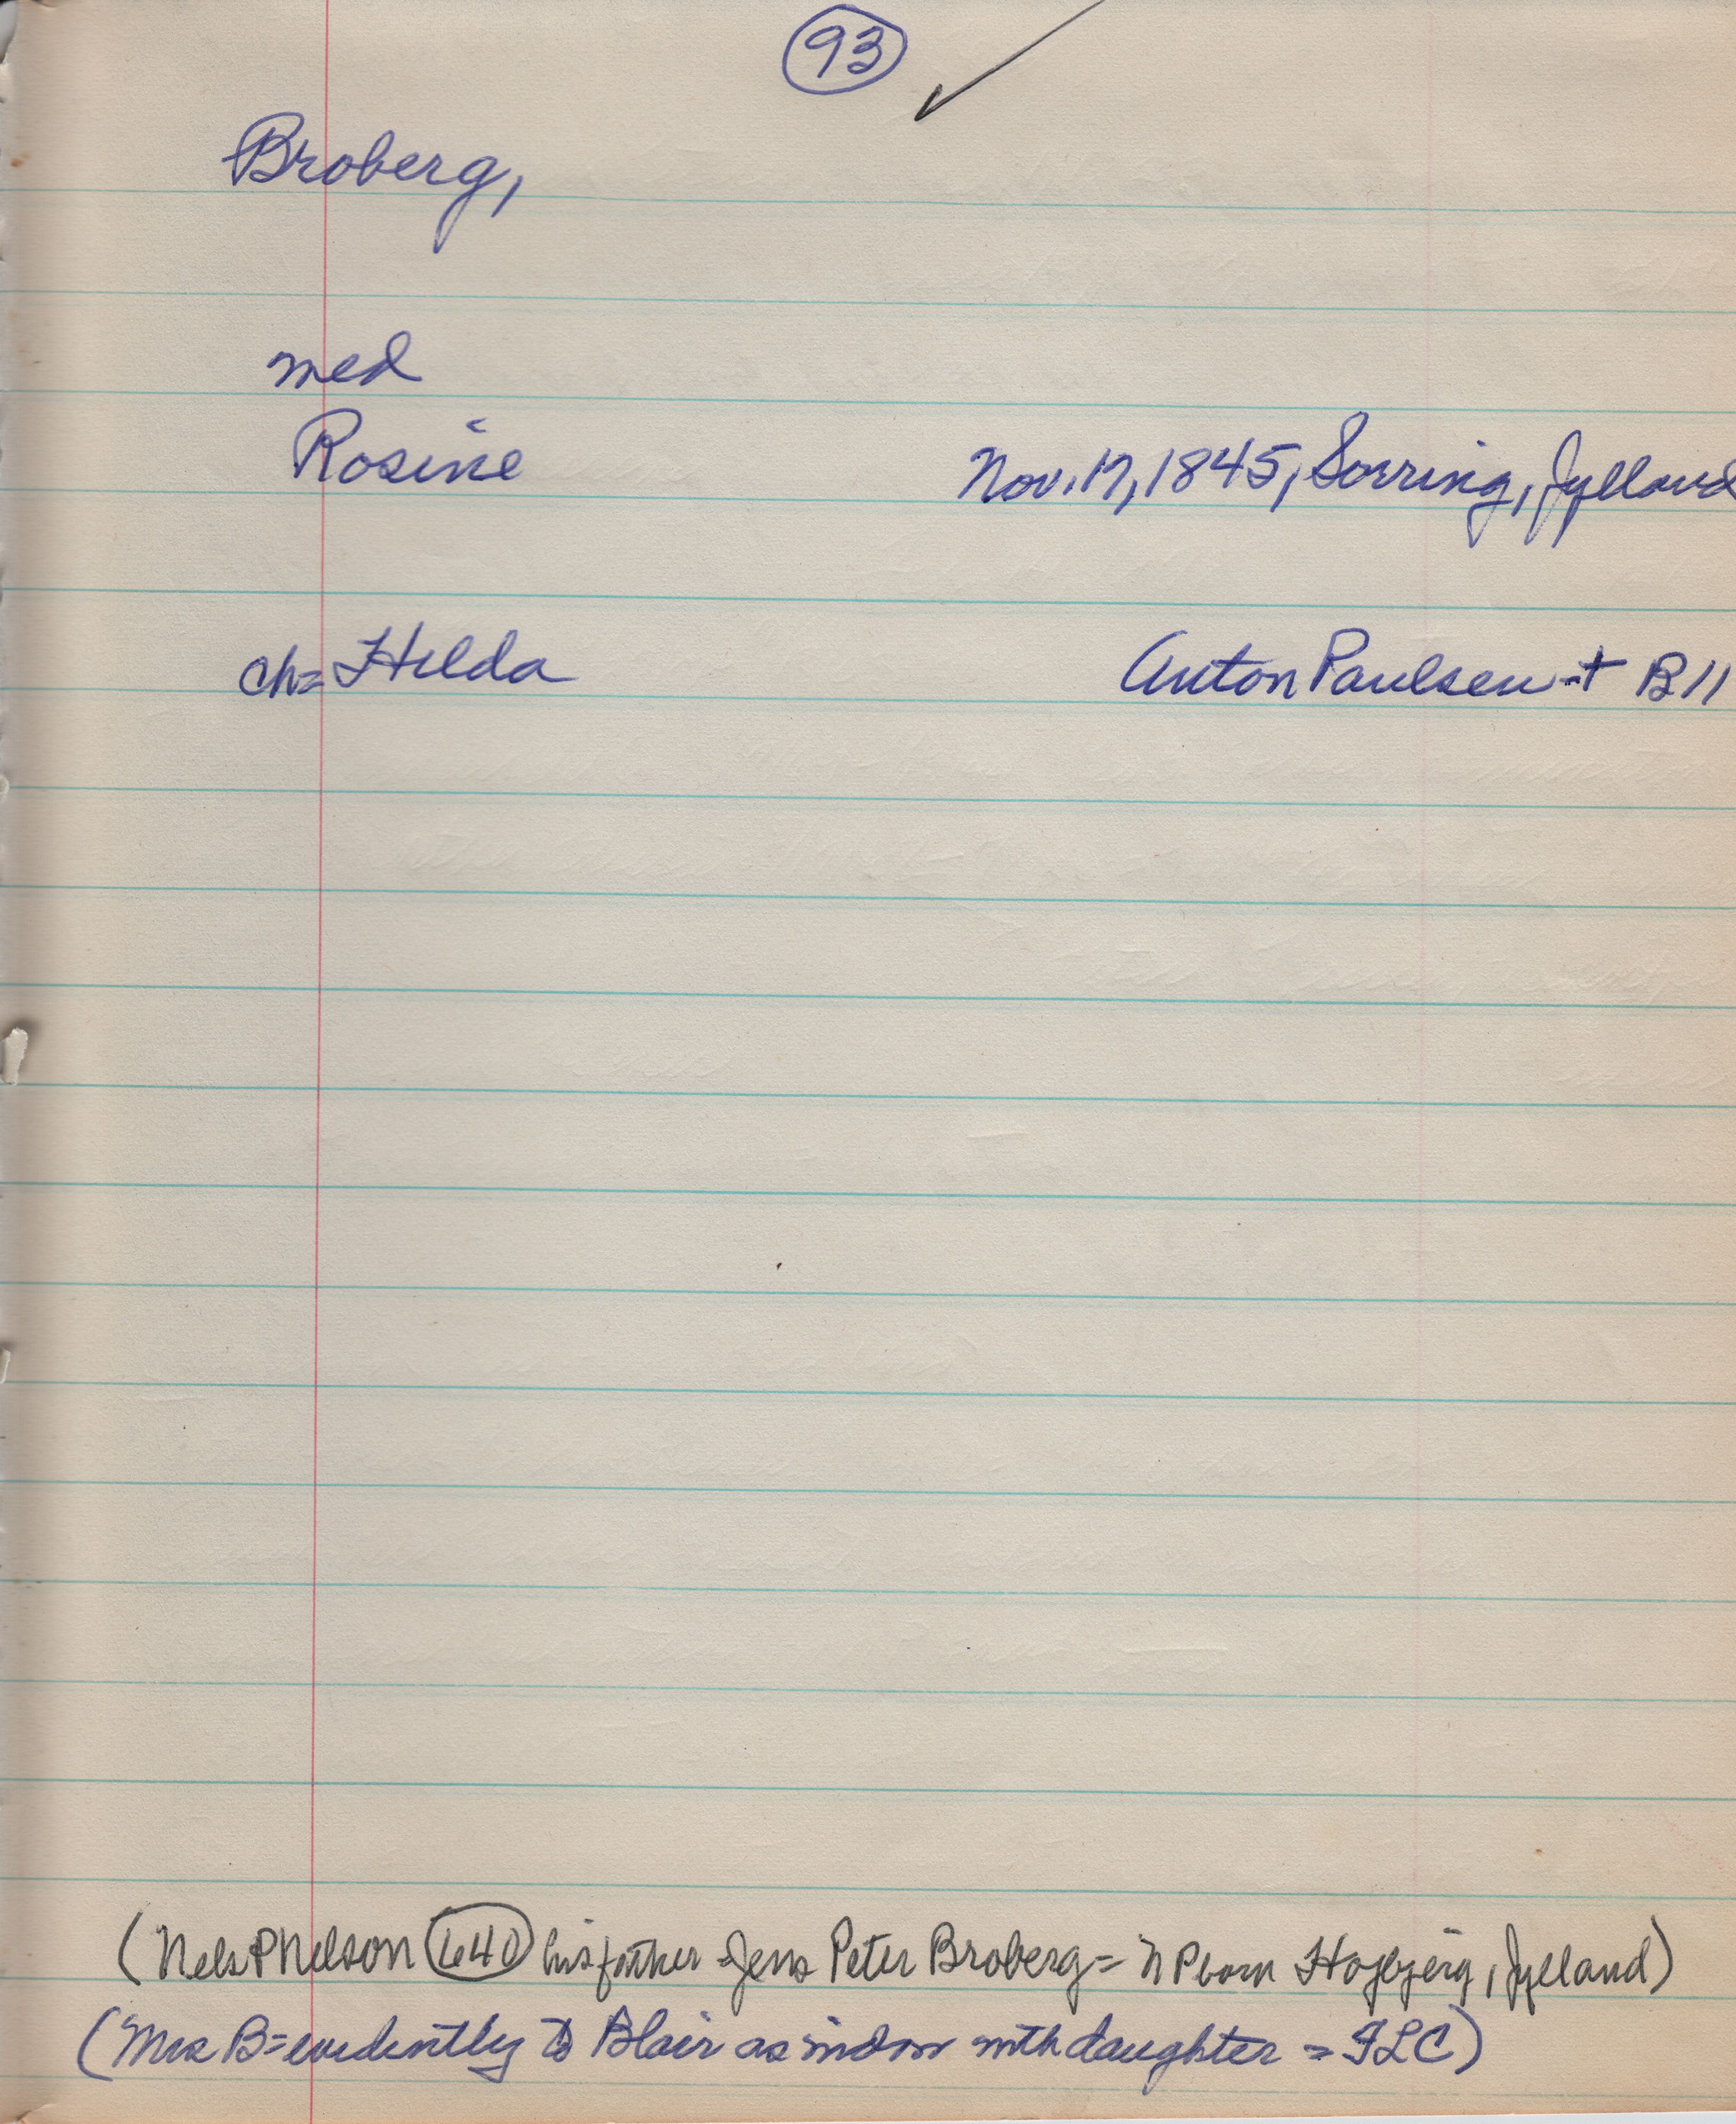 93
Broberg,
med
Rosine Nov. 17, 1845, Sorring, Jylland
ch= Hilda Anton Paulsen + B11
(Nels P Nelson 640 his father Jens Peter Broberg = NP born Hojbjerg, Jylland)
(Mrs B = evidently to Blair as widow with daughter = FLC)